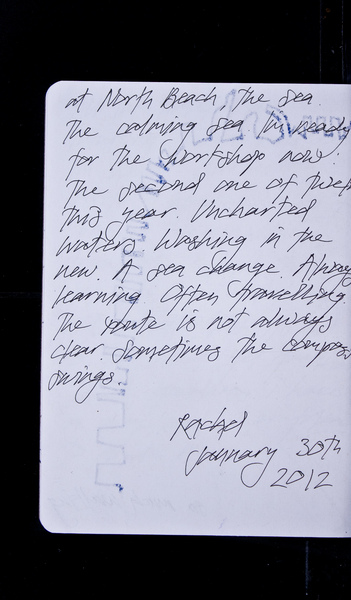 at North Beach, the sea.
The calming sea. I'm ready
for the workshop now.
The second one of
this year. Uncharted
waters. Washing in the
new. A sea change. Always
learning. Often travelling.
The route is not always
clear. Sometimes the compass
swings.
Rachel
January 30th
2012